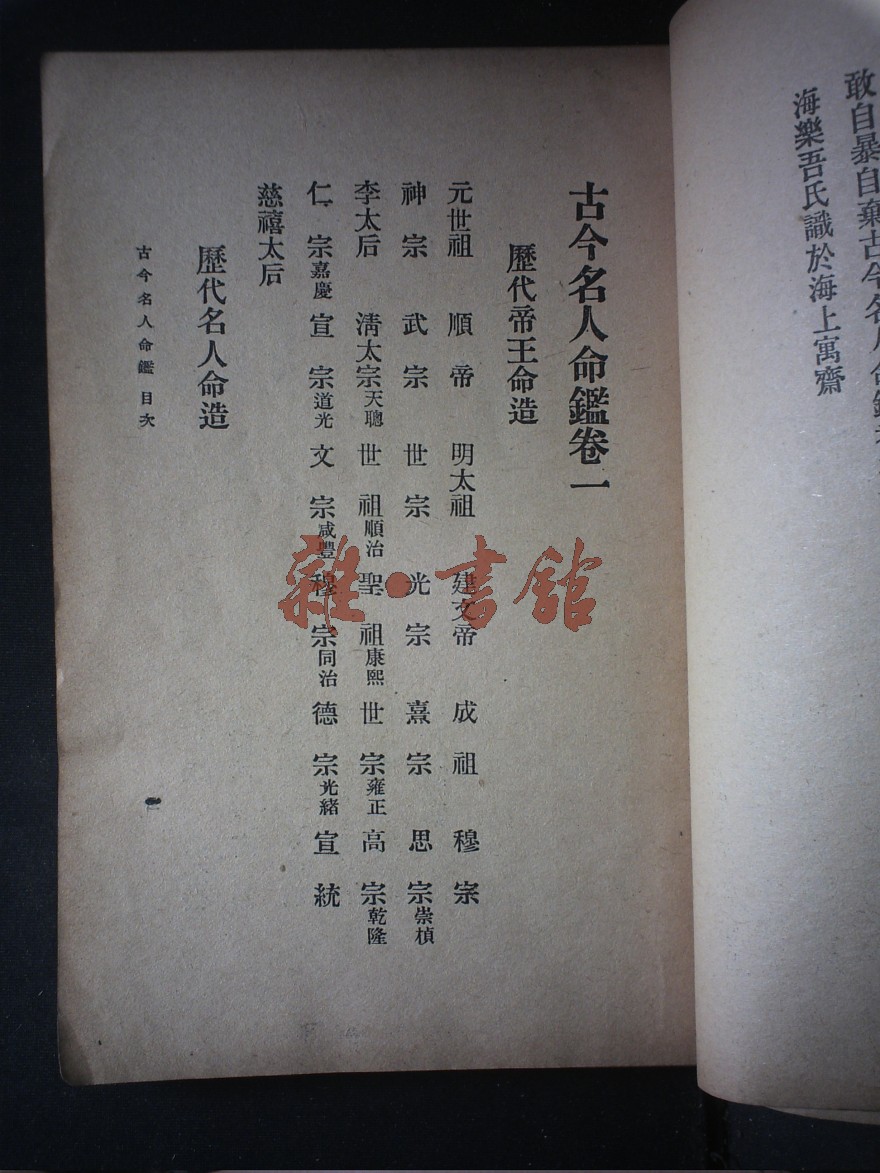 敢自暴自棄古今名人命鑑
海樂吾氏識於海上寓齋
古今名人命鑑卷一
歷代帝王命造
元世祖 順帝 明太祖 建文帝 成祖 穆宗
神宗 武宗 世宗 光宗 熹宗 思宗崇楨
李太后 清太宗天聰 世祖順治 聖祖康熙 世宗雍正 高宗乾隆
仁宗嘉慶 宣宗道光 文宗咸豐 穆宗同治 德宗光緒 宣統
慈禧太后
歷代名人命造
古今名人命鑑 目次
雜·書館